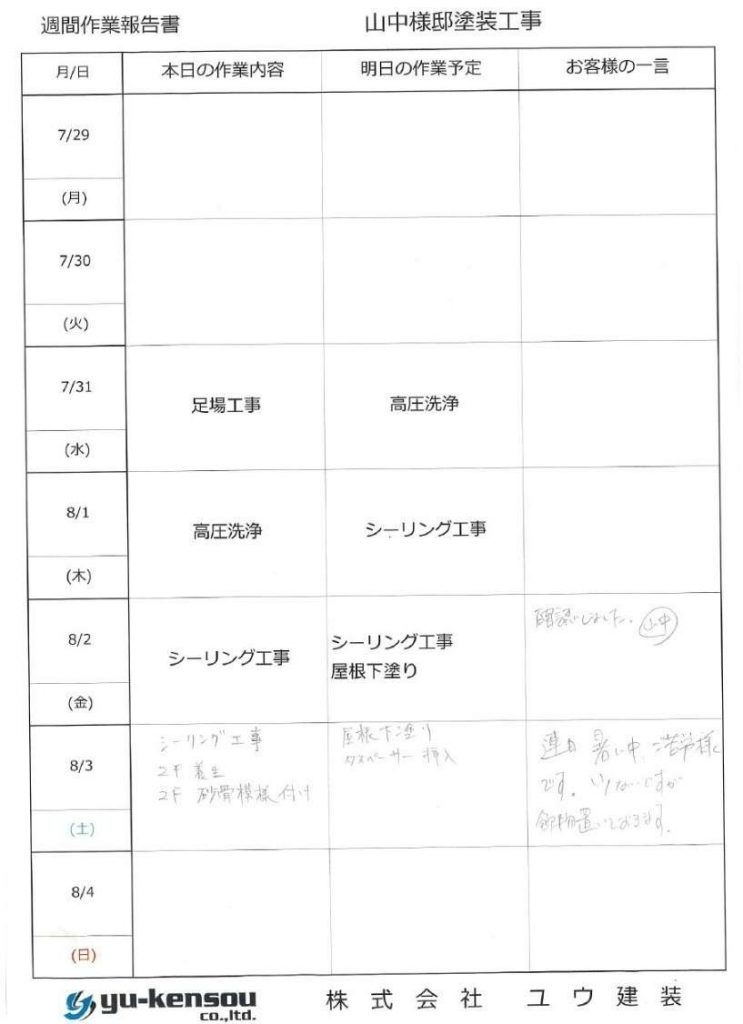 週間作業報告書 山中様邸塗装工事
月/日 本日の作業内容 明日の作業予定 お客様の一言
7/29
(月)
7/30
(火)
7/31 足場工事 高圧洗浄
(水)
8/1 高圧洗浄 シーリング工事
(木)
8/2 シーリング工事 シーリング工事
屋根下塗り
確認しました。 山中
(金)
8/3
シーリング工事
2F 養生
2F 砂骨模様付け
屋根下塗り
タスペーサー挿入
連日 暑い中、ご苦労様
です。
置いております。
(土)
8/4
(日)
yu-kensou co.,ltd. 株式会社 ユウ建装